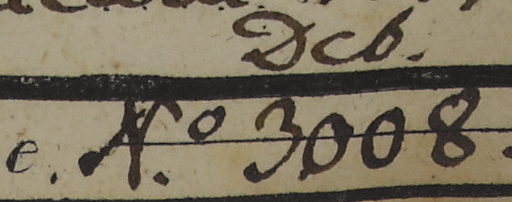 Deb.
e. No. 3008.